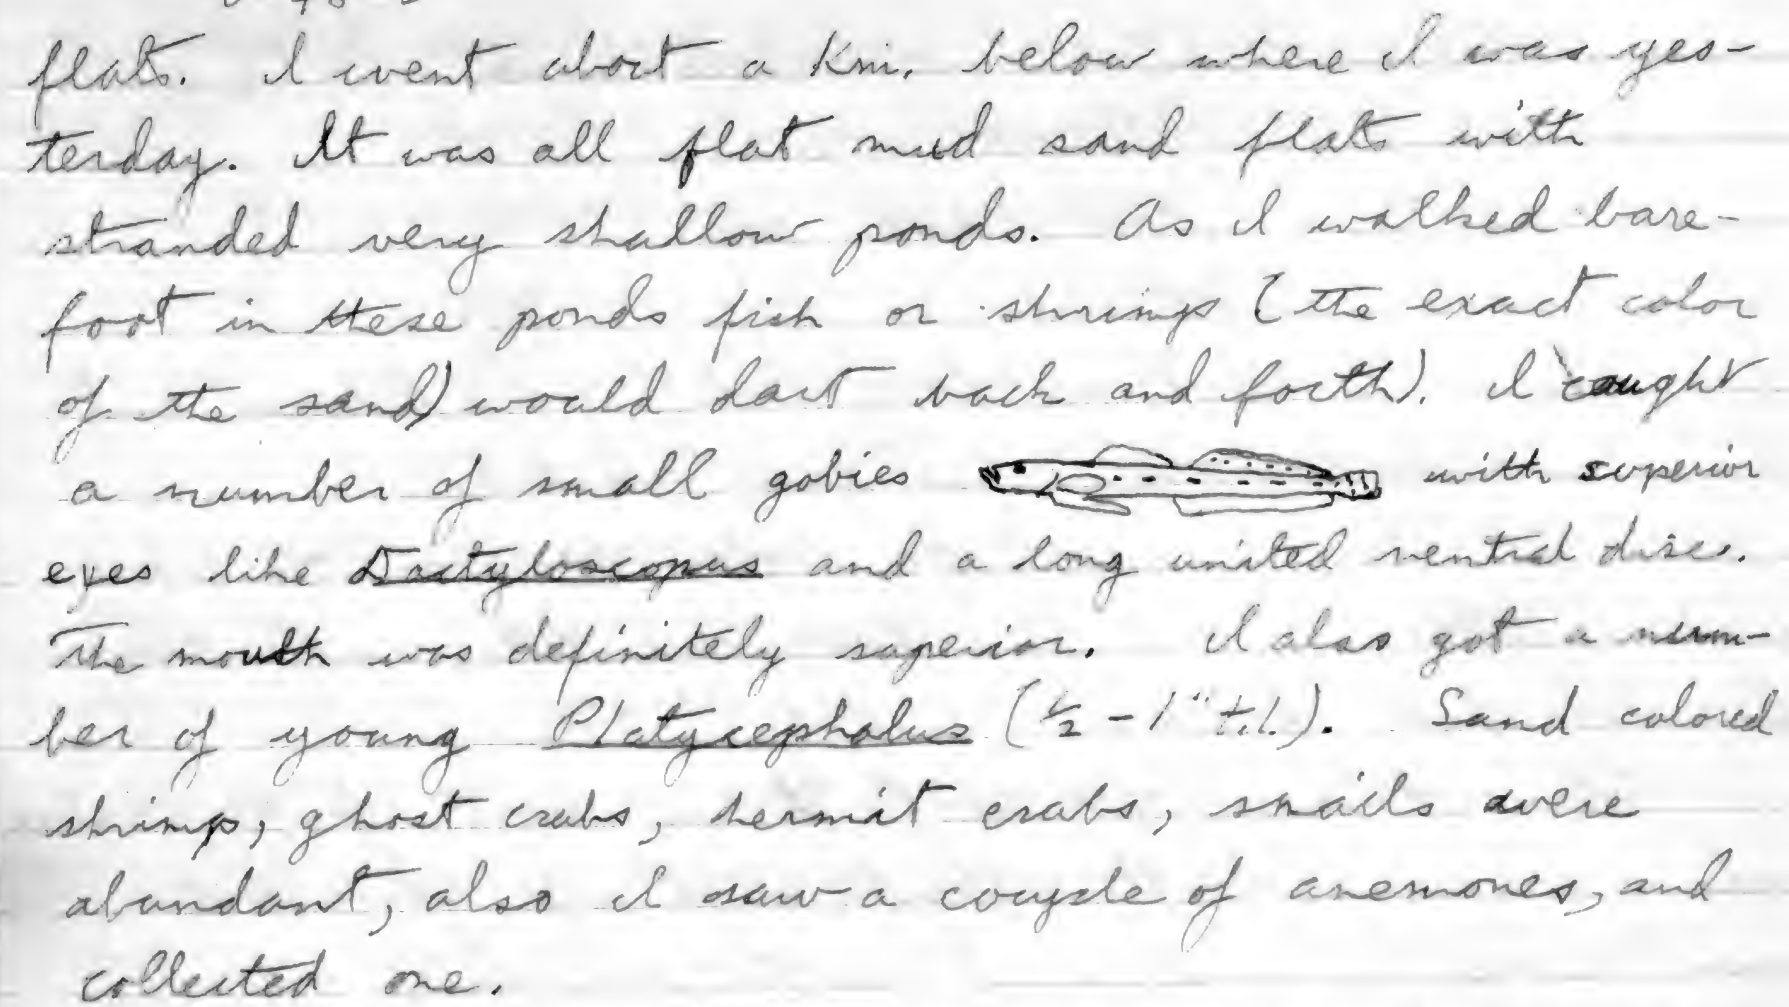 flats. I went about a Km. below where I was yes-
terday. It was all flat mud sand flats with
stranded very shallow ponds. As I walked bare-
foot in these ponds fish or shrimps (the exact color
of the sand) would dart back and forth). I caught
a number of small gobies with superior
eyes like Dactyloscopus and a long united ventral disc.
The mouth was definitely superior. I also got a num-
ber of young Platycephalus (1/2 - 1" t.l.). Sand colored
shrimp, ghost crabs, hermit crabs, snails were
abundant, also I saw a couple of anemones, and
collected one.